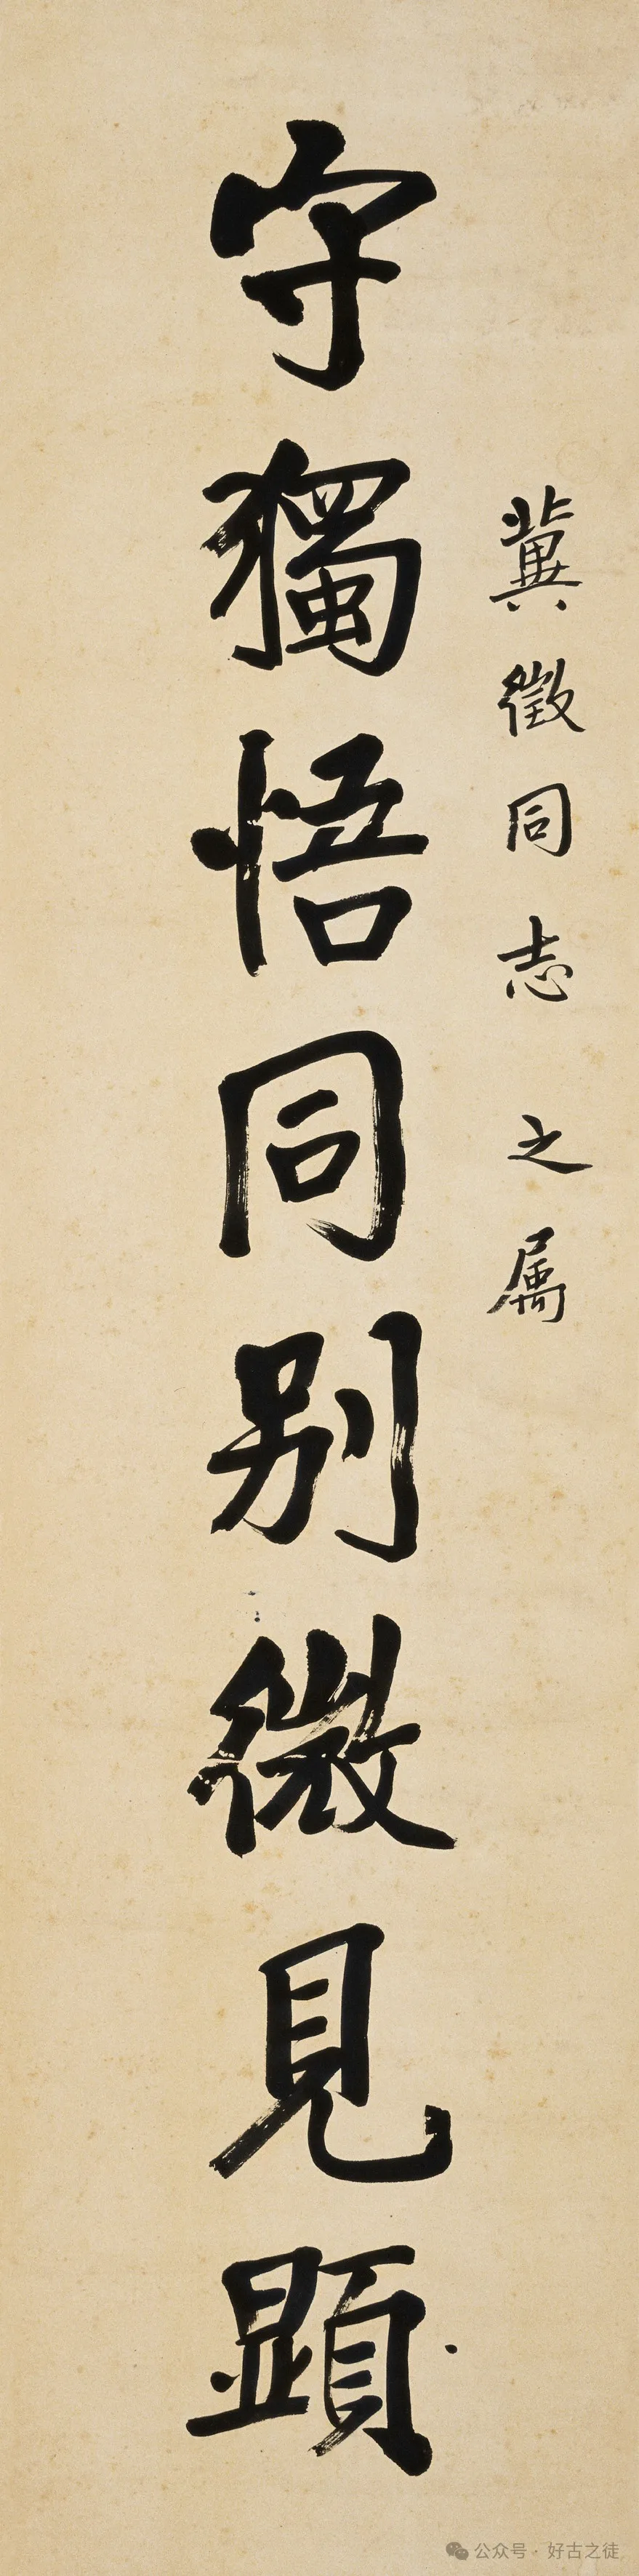 冀徵同志之属
守獨悟同别微見顕
公众号·好古之徒